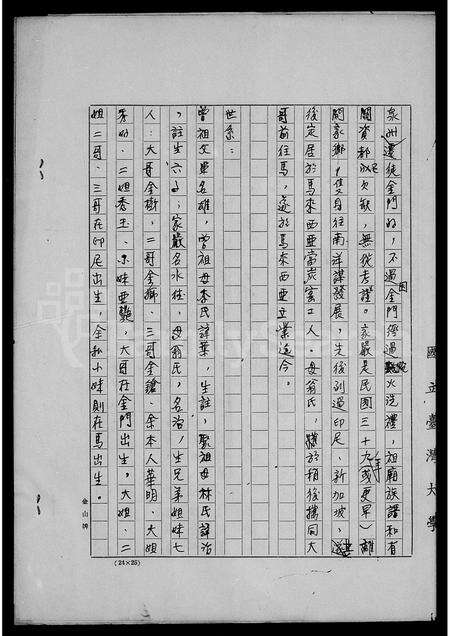 泉州遷徙金門的，不過因金門經過戰火洗禮，祖廟族譜和有
關資都欠缺，無從考證。家嚴是民國三十九年（或更早）離
開家鄉，隻身往南洋謀發展，先後到過印尼、新加坡，
後定居於馬來西亞當炭窰工人。母翁氏，於稍後攜同大
哥前往馬，遂於馬來西亞立業迄今。
世系：
曾祖父單名雄，曾祖母李氏諱葉，生註，祖母林氏諱治
，註生六，家嚴名水柱，母翁氏，名治，生兄弟姐妹七
人：大哥金樹，二哥金鄉、三哥金鎗、余本人華明、大姐
、二姐秀玉、小妹亞艷，大哥在金門出生。大姐、二
姐二哥、三哥在印尼出生，余和小妹則在馬出生。
國立臺灣大學
金山牌
(24×25)